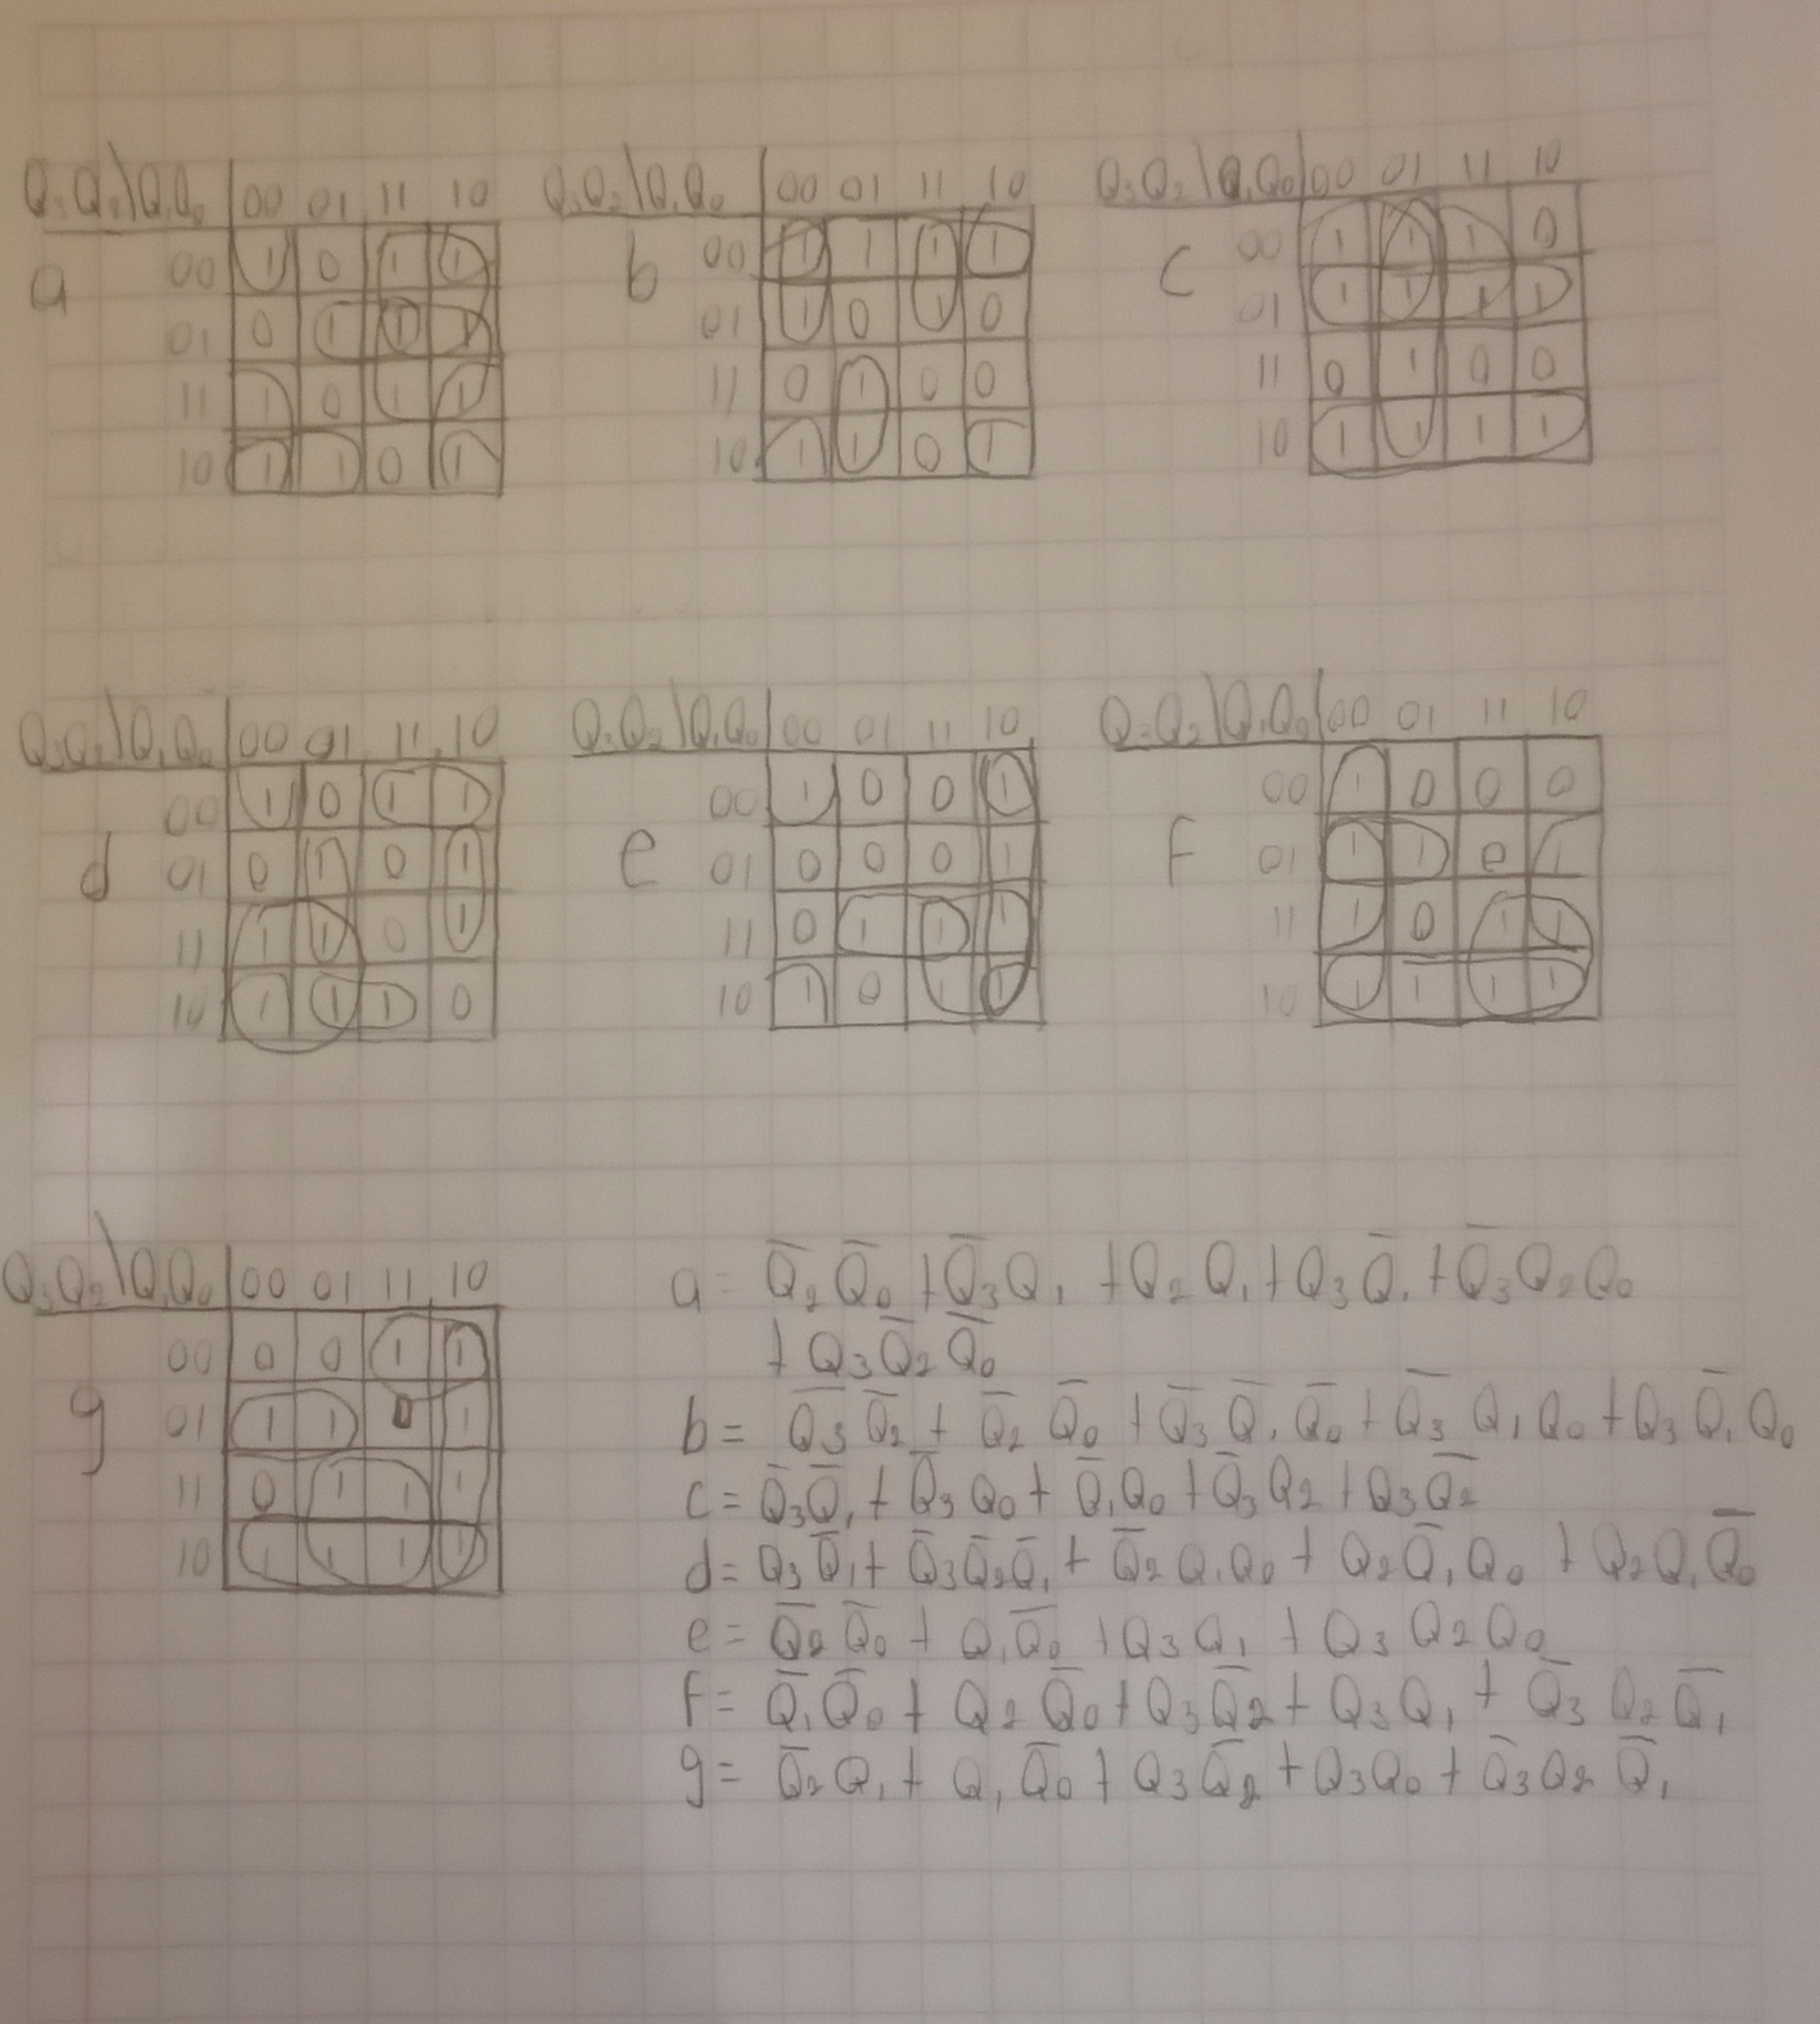 Q₃Q₂\Q₁Q₀ 00 01 11 10
a
00 1 0 1 1
01 0 1 1 1
11 1 0 1 1
10 1 1 0 1
Q₃Q₂\Q₁Q₀ 00 01 11 10
b
00 1 1 1 1
01 1 0 1 0
11 0 1 0 0
10 1 1 0 1
Q₃Q₂\Q₁Q₀ 00 01 11 10
c
00 1 1 1 0
01 1 1 1 1
11 0 1 0 0
10 1 1 1 1
Q₃Q₂\Q₁Q₀ 00 01 11 10
d
00 1 0 1 1
01 0 1 0 1
11 1 1 0 1
10 1 1 1 0
Q₃Q₂\Q₁Q₀ 00 01 11 10
e
00 1 0 0 1
01 0 0 0 1
11 0 1 1 1
10 1 0 1 1
Q₃Q₂\Q₁Q₀ 00 01 11 10
f
00 1 0 0 0
01 1 1 0 1
11 1 0 1 1
10 1 1 1 1
Q₃Q₂\Q₁Q₀ 00 01 11 10
g
00 0 0 1 1
01 1 1 0 1
11 0 1 1 1
10 1 1 1 1
a = Q̅₂Q̅₀ + Q̅₃Q₁ + Q₂Q₁ + Q₃Q̅₁ + Q̅₃Q₂Q₀
+ Q₃Q̅₂Q̅₀
b = Q̅₃Q̅₂ + Q̅₂Q̅₀ + Q̅₃Q̅₁Q̅₀ + Q̅₃Q₁Q₀ + Q₃Q̅₁Q₀
c = Q̅₃Q̅₁ + Q̅₃Q₀ + Q̅₁Q₀ + Q̅₃Q₂ + Q₃Q̅₂
d = Q₃Q̅₁ + Q̅₃Q̅₂Q̅₁ + Q̅₂Q₁Q₀ + Q₂Q̅₁Q₀ + Q₂Q₁Q̅₀
e = Q̅₂Q̅₀ + Q₁Q̅₀ + Q₃Q₁ + Q₃Q₂Q₀
f = Q̅₁Q̅₀ + Q₂Q̅₀ + Q₃Q̅₂ + Q₃Q₁ + Q̅₃Q₂Q̅₁
g = Q̅₂Q₁ + Q₁Q̅₀ + Q₃Q̅₂ + Q₃Q₀ + Q̅₃Q₂Q̅₁